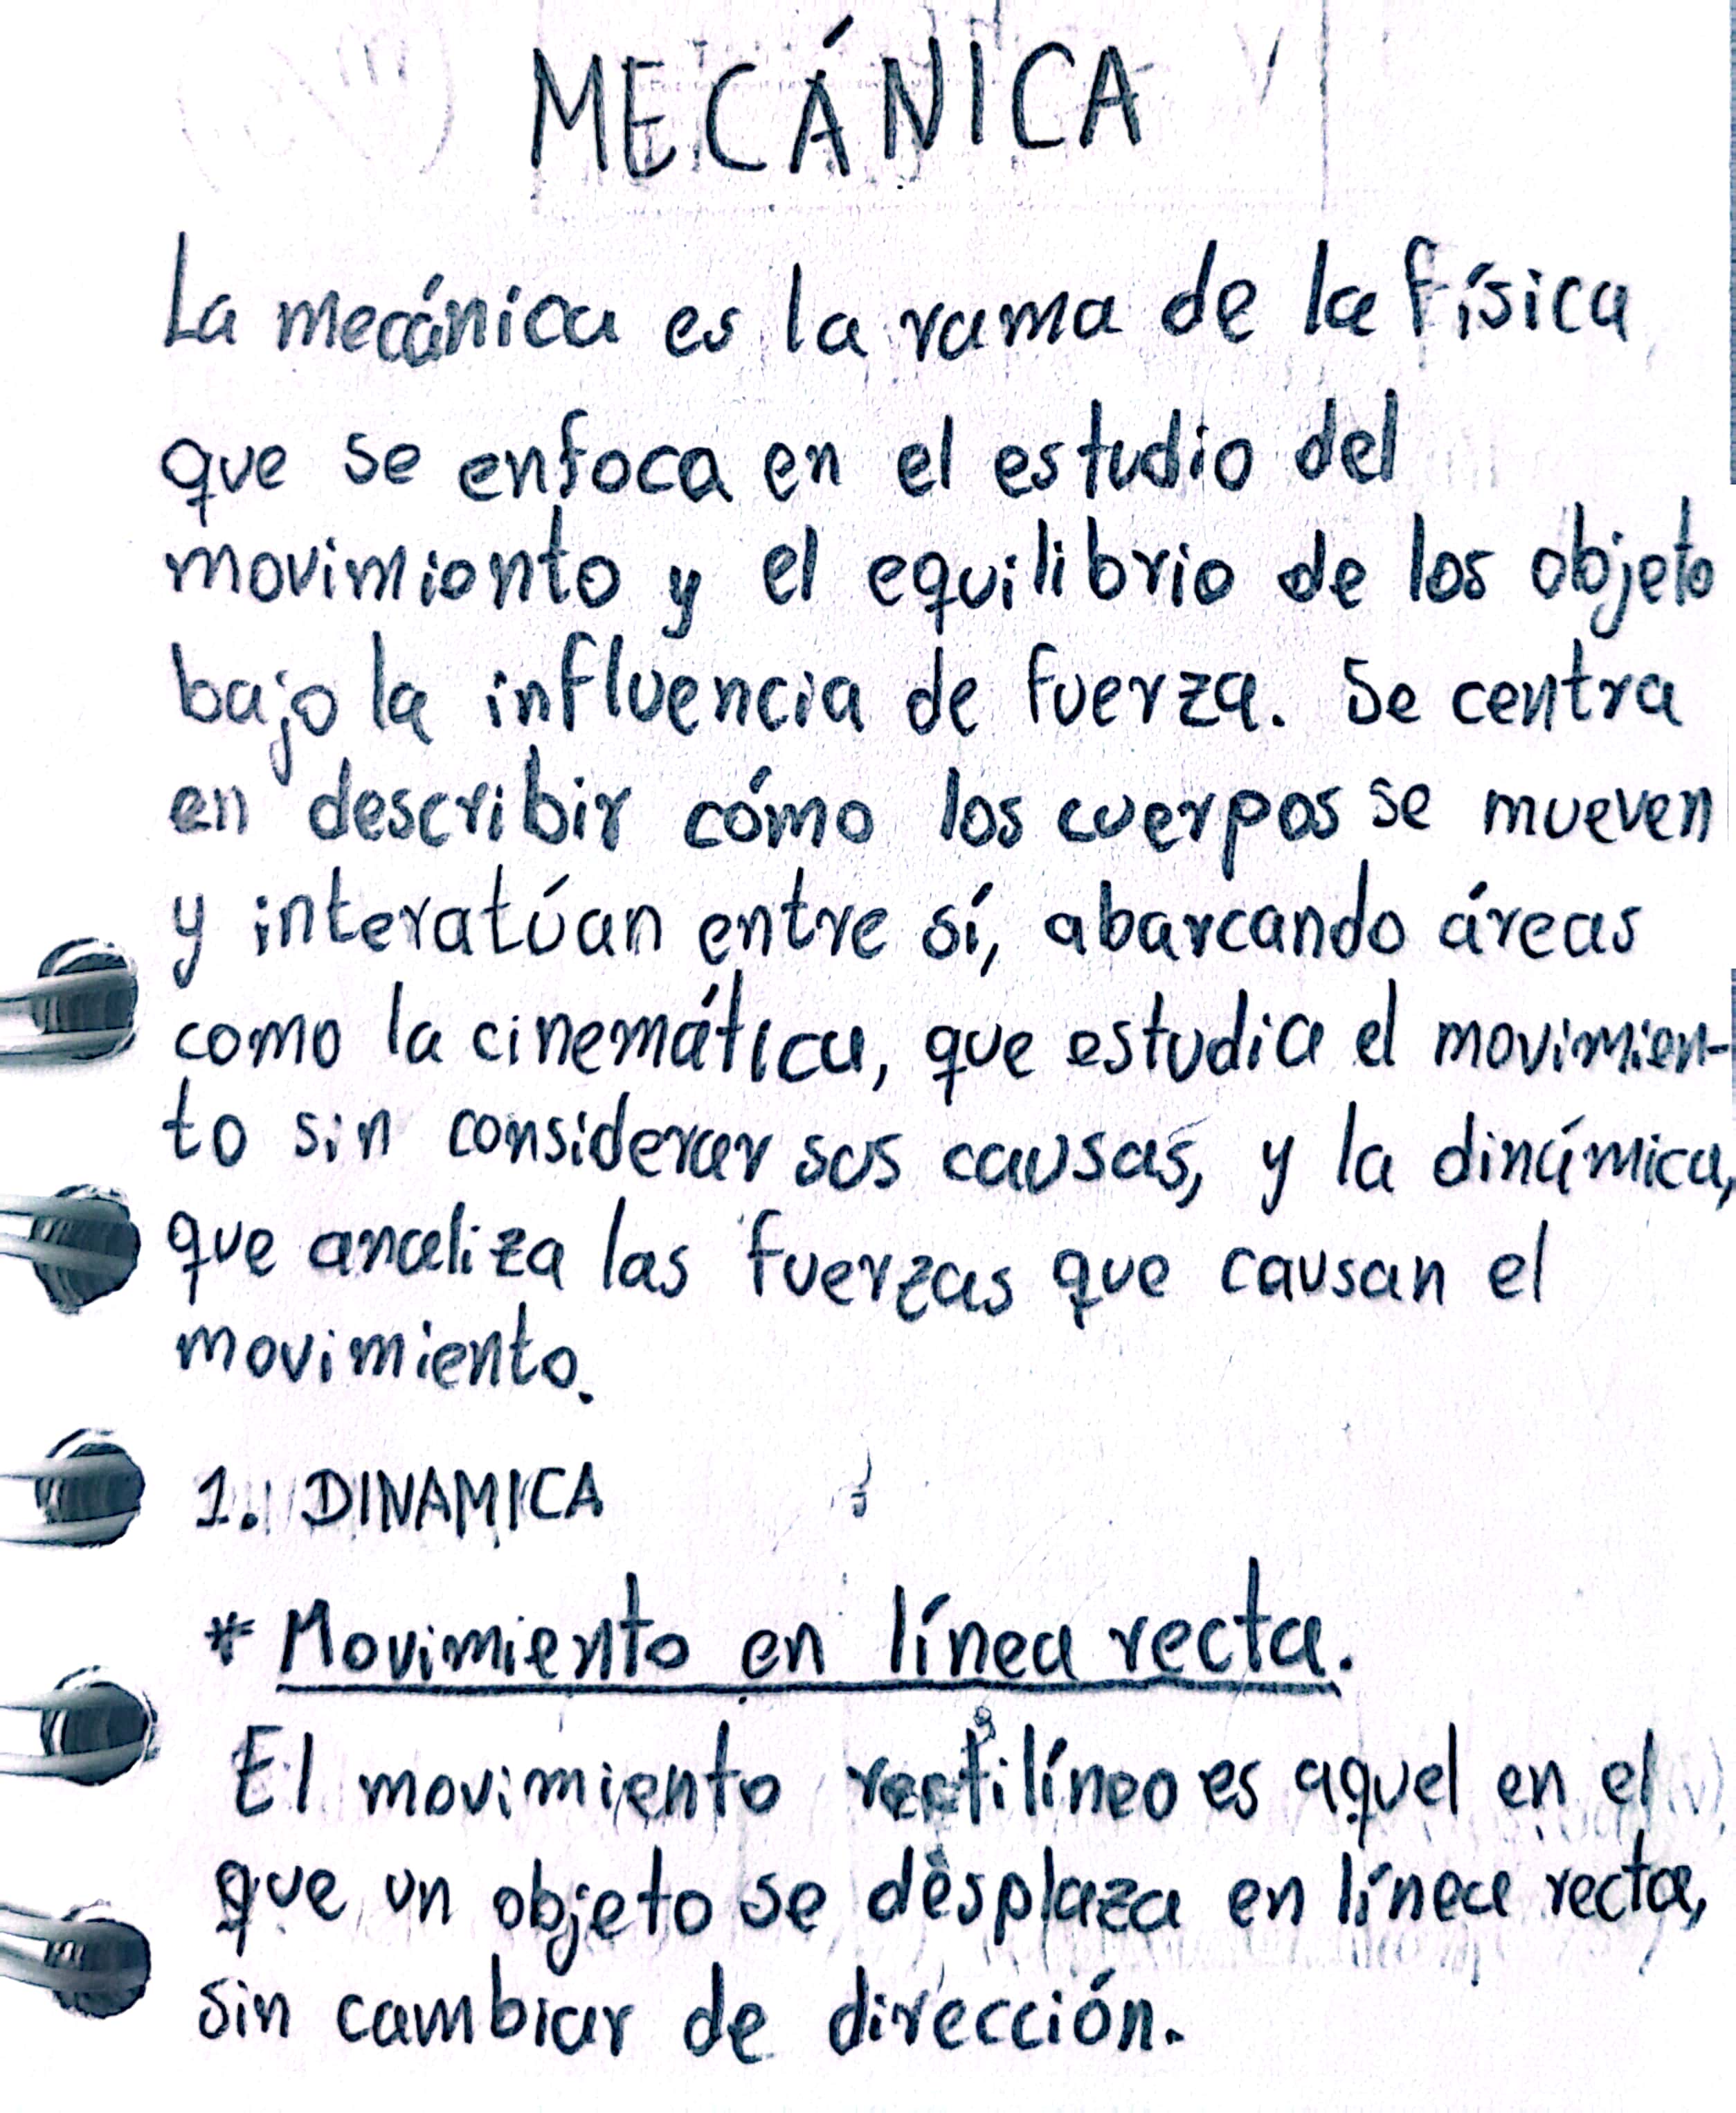 MECÁNICA
La mecánica es la rama de la física
que se enfoca en el estudio del
movimiento y el equilibrio de los objeto
bajo la influencia de fuerza. Se centra
en describir cómo los cuerpos se mueven
y interatúan entre sí, abarcando áreas
como la cinemática, que estudia el movimien-
to sin considerar sus causas, y la dinámica,
que analiza las fuerzas que causan el
movimiento.
1. DINAMICA
* Movimiento en línea recta.
El movimiento rectilíneo es aquel en el
que un objeto se desplaza en línea recta,
sin cambiar de dirección.